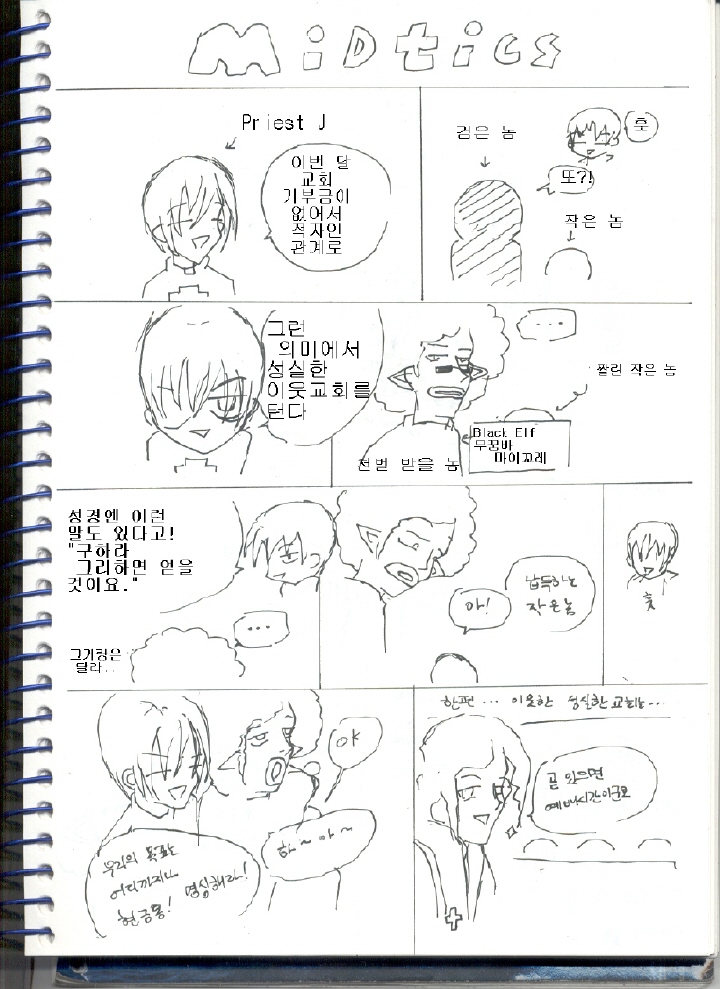 MiDtics
Priest J
이번 달
교회
기부금이
없어서
적자인
관계로
검은 놈
훗
또?!
작은 놈
그런
의미에서
성실한
이웃교회를
턴다
...
짤린 작은 놈
천벌 받을 놈
Black Elf
무꿈바
마이꼬레
성경엔 이런
말도 있다고!
"구하라
그리하면 얻을
것이요."
...
그거랑은
달라..
아!
납득하는
작은놈
훗
우리의 목표는
어디까지나
현금통! 명심해라!
OK
하~아~
한편... 이웃한 성실한 교회는...
곧 있으면
예배시간이군요